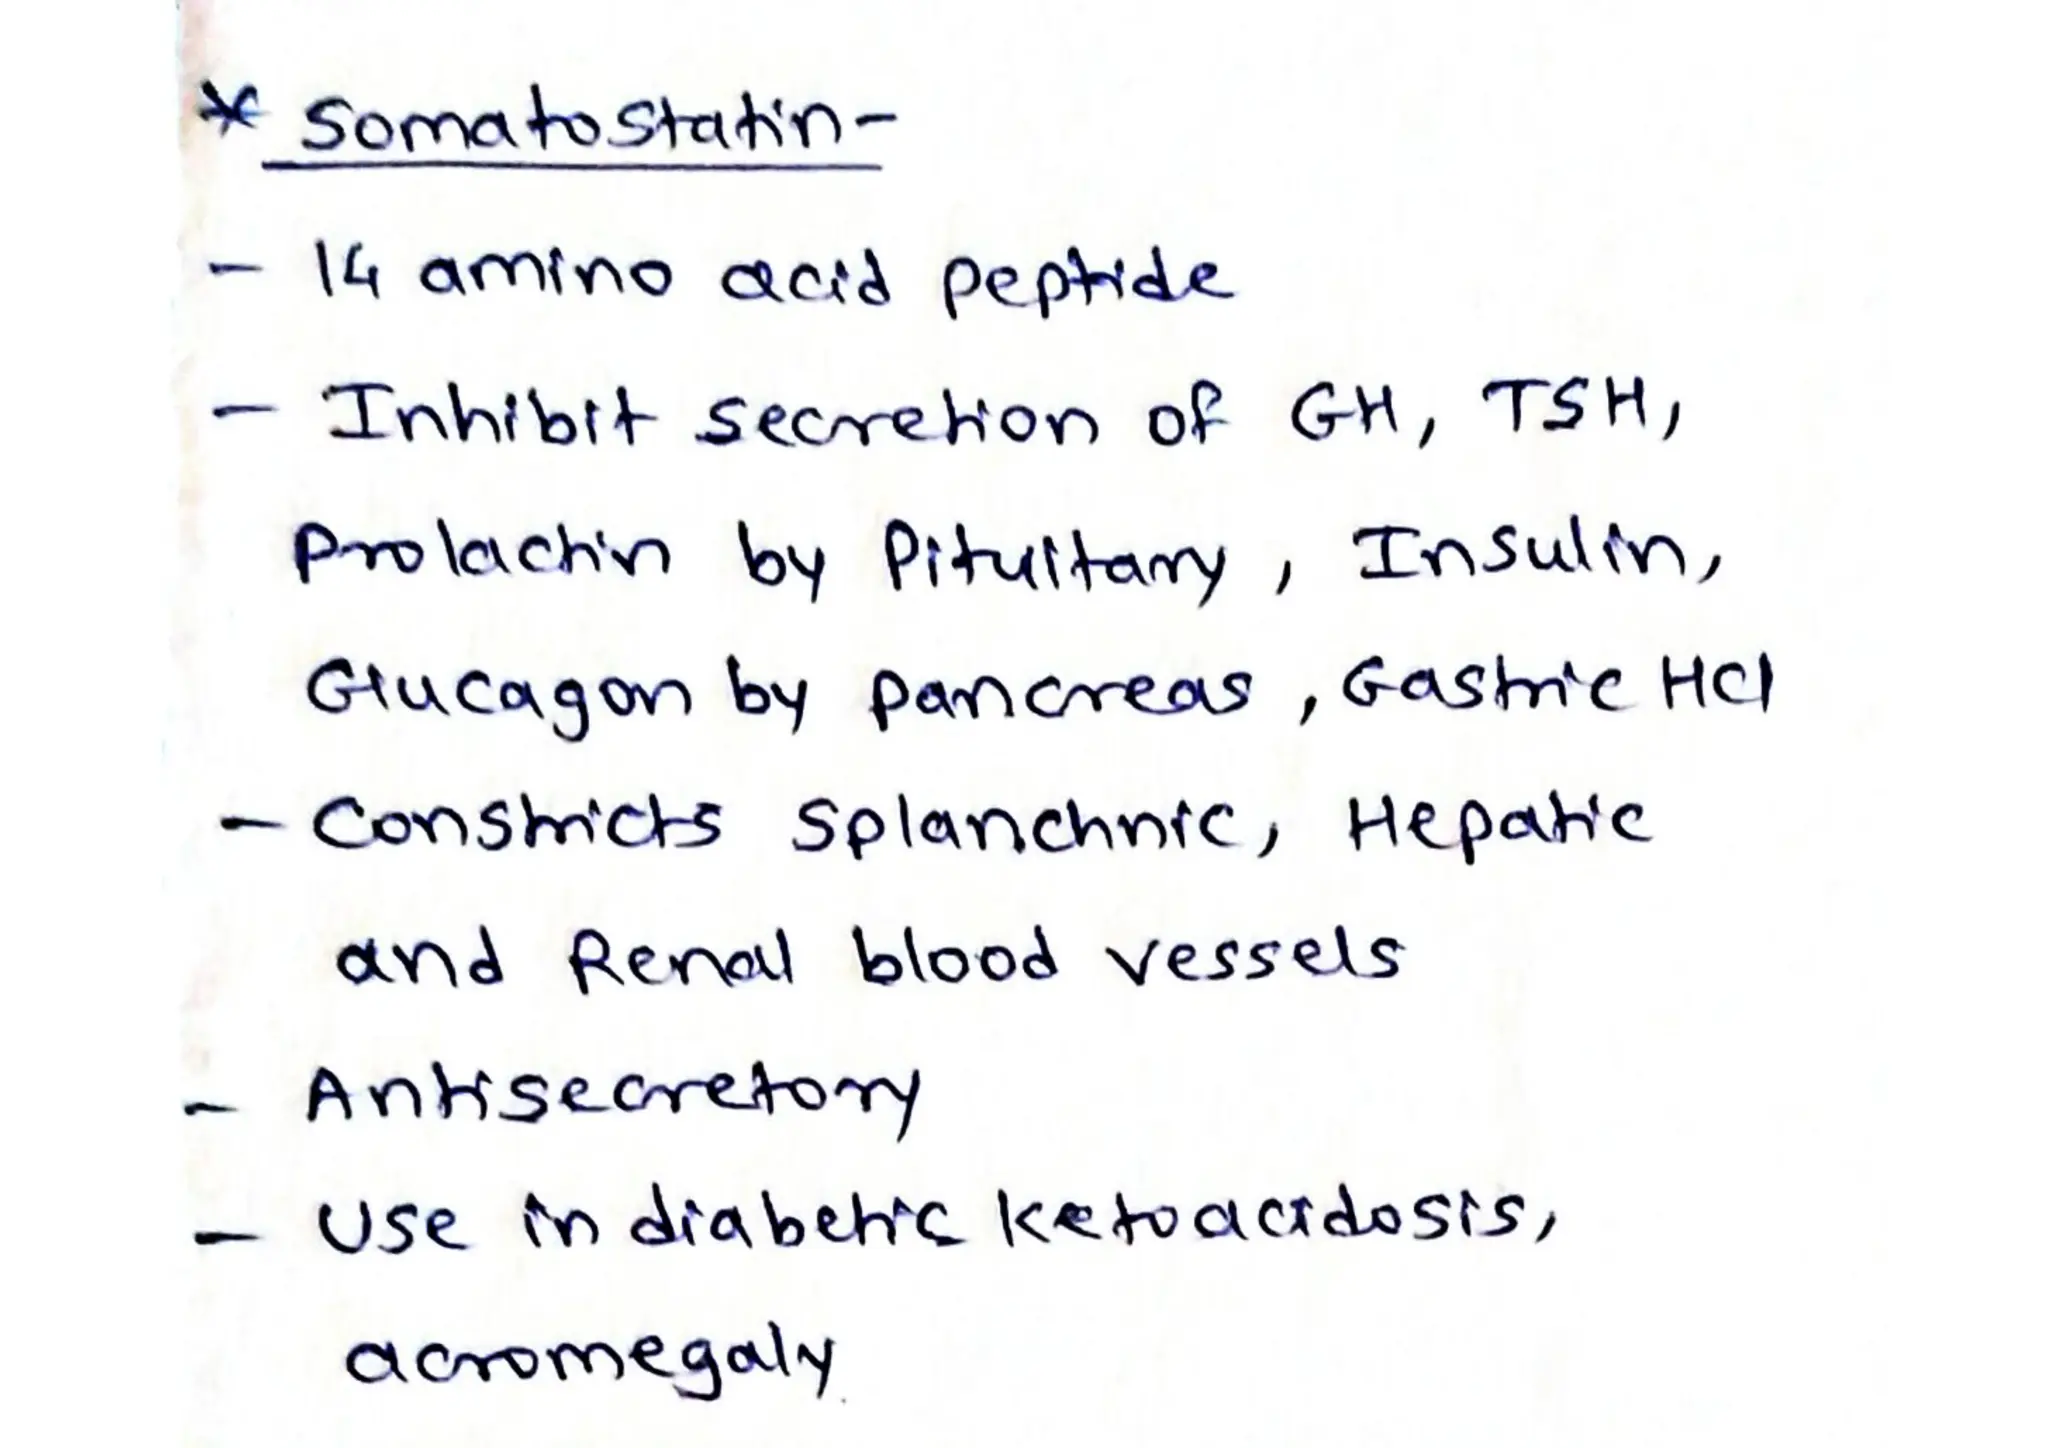 * Somatostatin-
- 14 amino acid peptide
- Inhibit secretion of GH, TSH,
Prolactin by Pituitary, Insulin,
Glucagon by pancreas, Gastric HCl
- Constricts Splanchnic, Hepatic
and Renal blood vessels
- Antisecretory
- Use in diabetic ketoacidosis,
acromegaly.